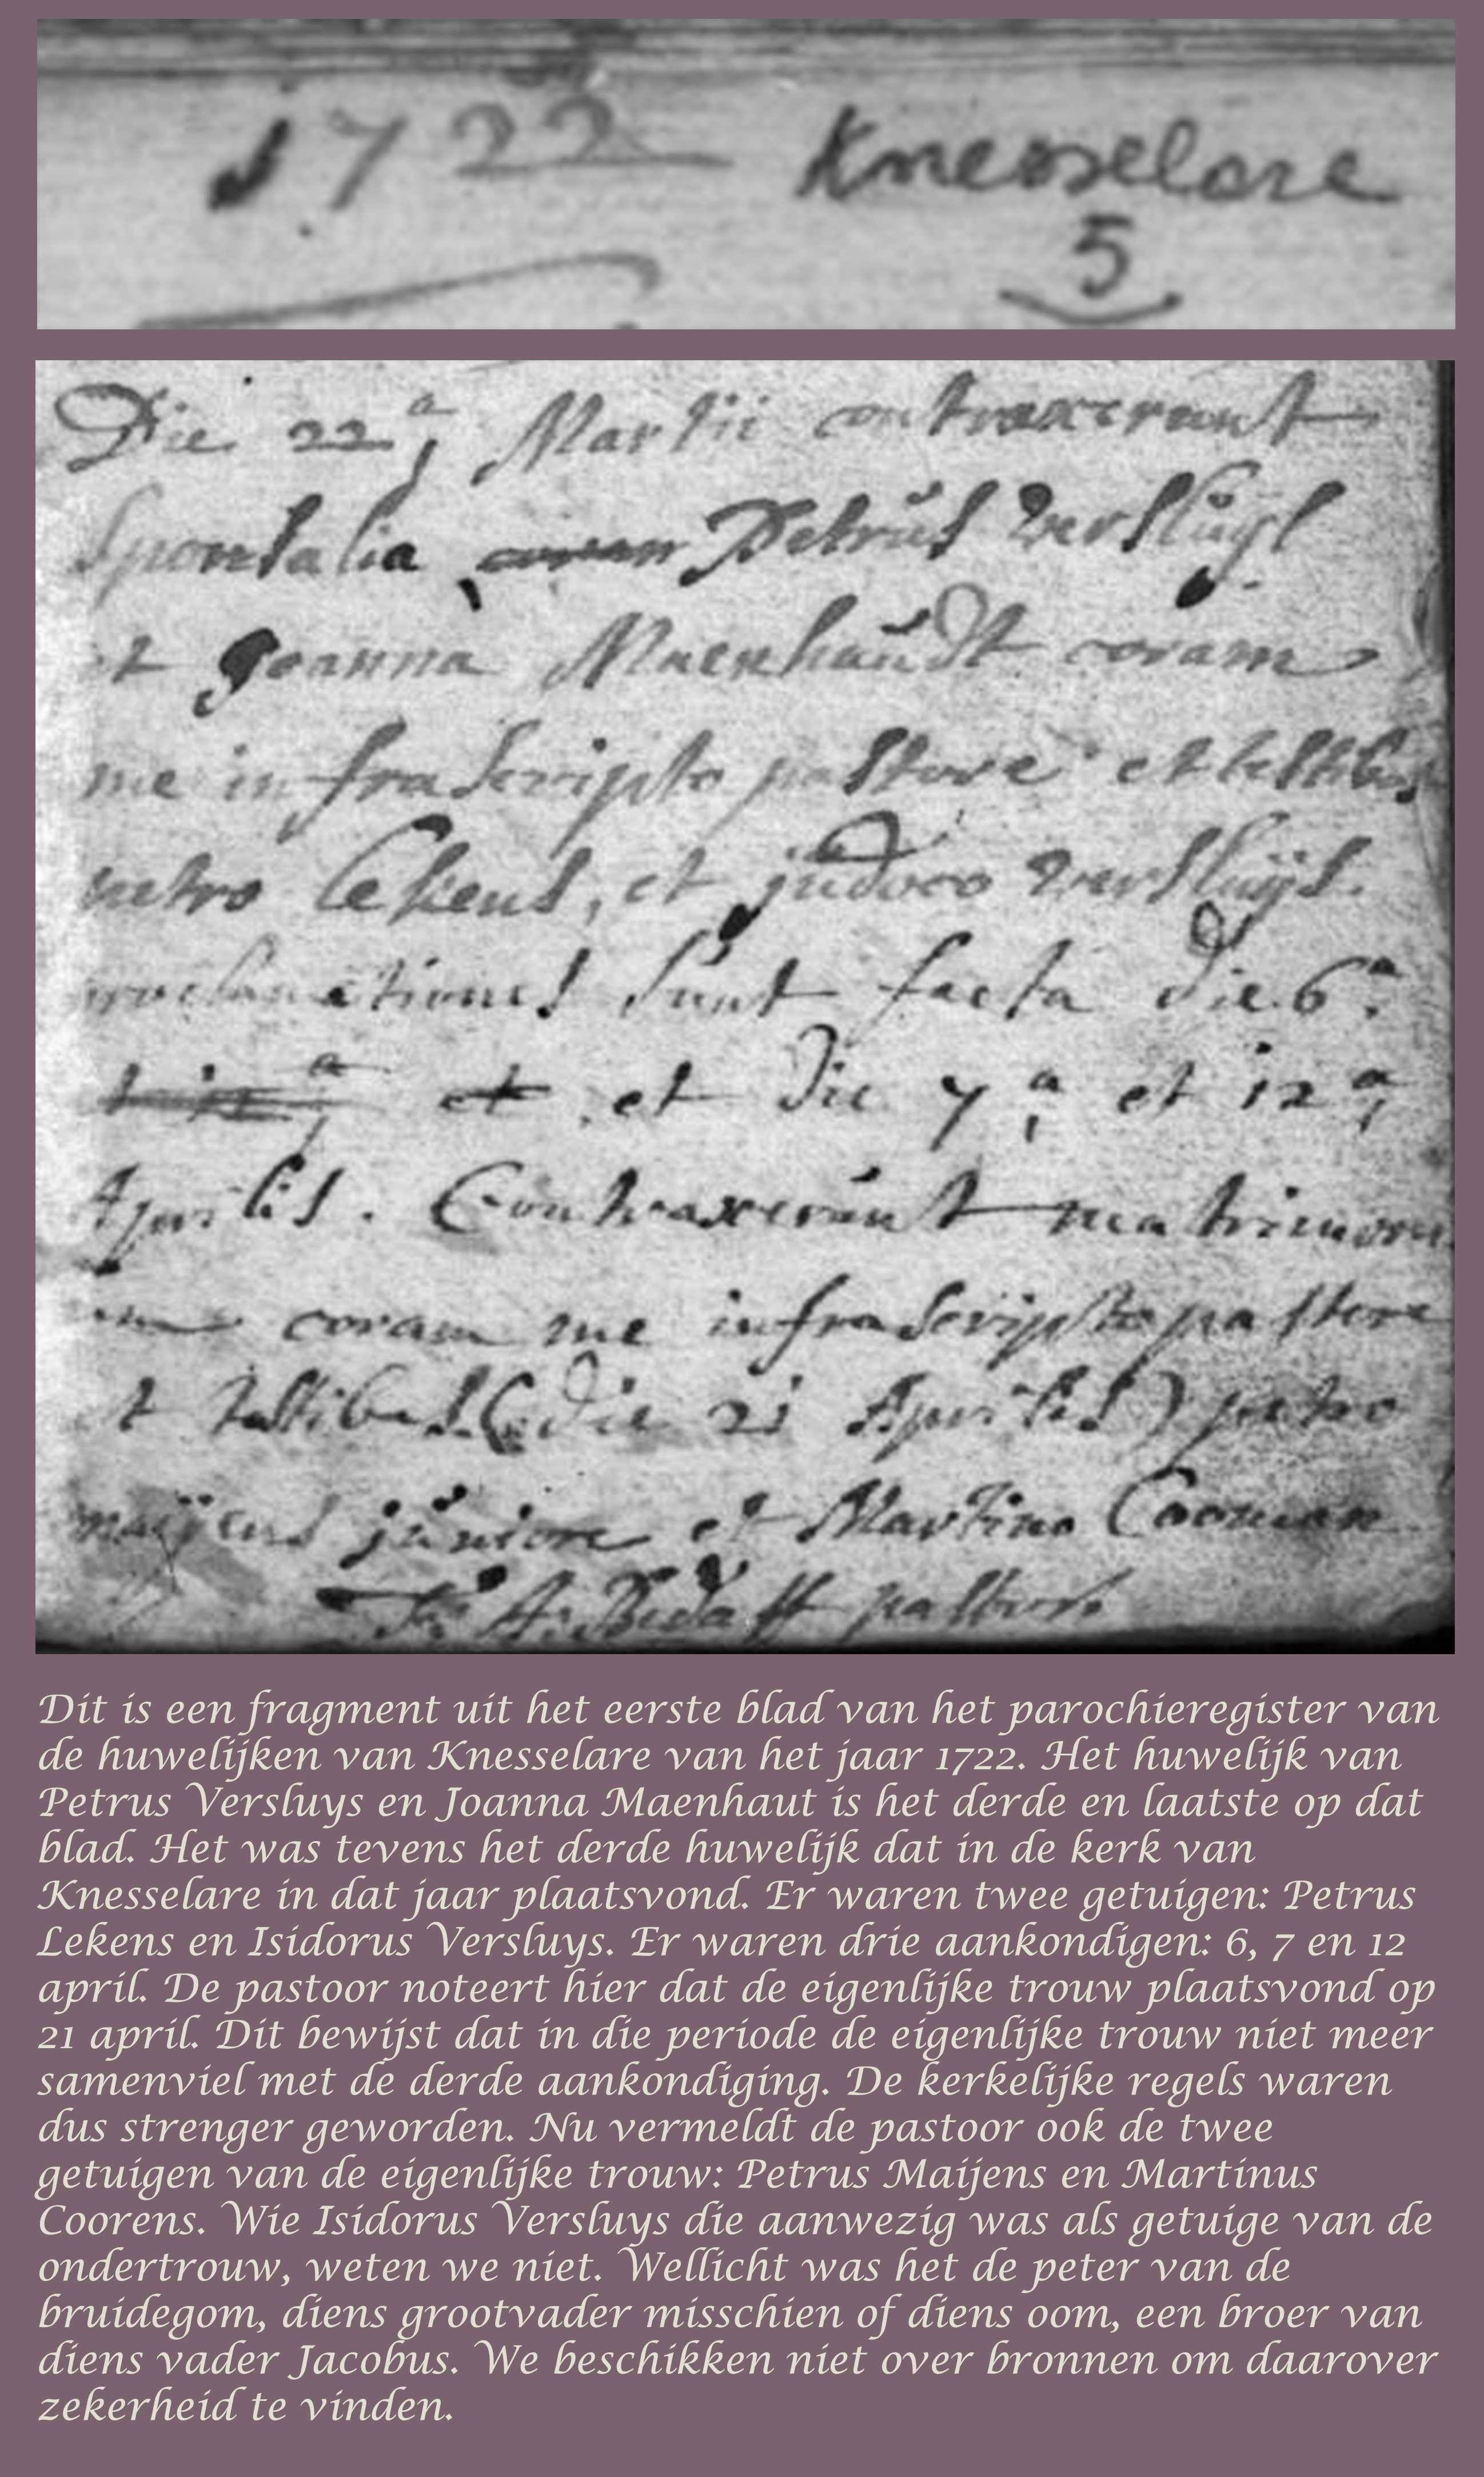 1722 Knesselare
5
Die 22a Martii contraxerunt
sponsalia coram Petrus Versluÿs
et Joanna Maenhaudt coram
me infrascripto pastore et testibus
petro lekens, et judoco versluijs.
proclamationes sunt facta die 6a
et et die 7a et 12a
Aprilis. Contraxerunt matrimoni
um coram me infrascripto pastore
et testibus (die 21 Aprilis) petro
maijens juniore et Martino Cooman
pastor
Dit is een fragment uit het eerste blad van het parochieregister van
de huwelijken van Knesselare van het jaar 1722. Het huwelijk van
Petrus Versluys en Joanna Maenhaut is het derde en laatste op dat
blad. Het was tevens het derde huwelijk dat in de kerk van
Knesselare in dat jaar plaatsvond. Er waren twee getuigen: Petrus
Lekens en Isidorus Versluys. Er waren drie aankondigen: 6, 7 en 12
april. De pastoor noteert hier dat de eigenlijke trouw plaatsvond op
21 april. Dit bewijst dat in die periode de eigenlijke trouw niet meer
samenviel met de derde aankondiging. De kerkelijke regels waren
dus strenger geworden. Nu vermeldt de pastoor ook de twee
getuigen van de eigenlijke trouw: Petrus Maijens en Martinus
Coorens. Wie Isidorus Versluys die aanwezig was als getuige van de
ondertrouw, weten we niet. Wellicht was het de peter van de
bruidegom, diens grootvader misschien of diens oom, een broer van
diens vader Jacobus. We beschikken niet over bronnen om daarover
zekerheid te vinden.